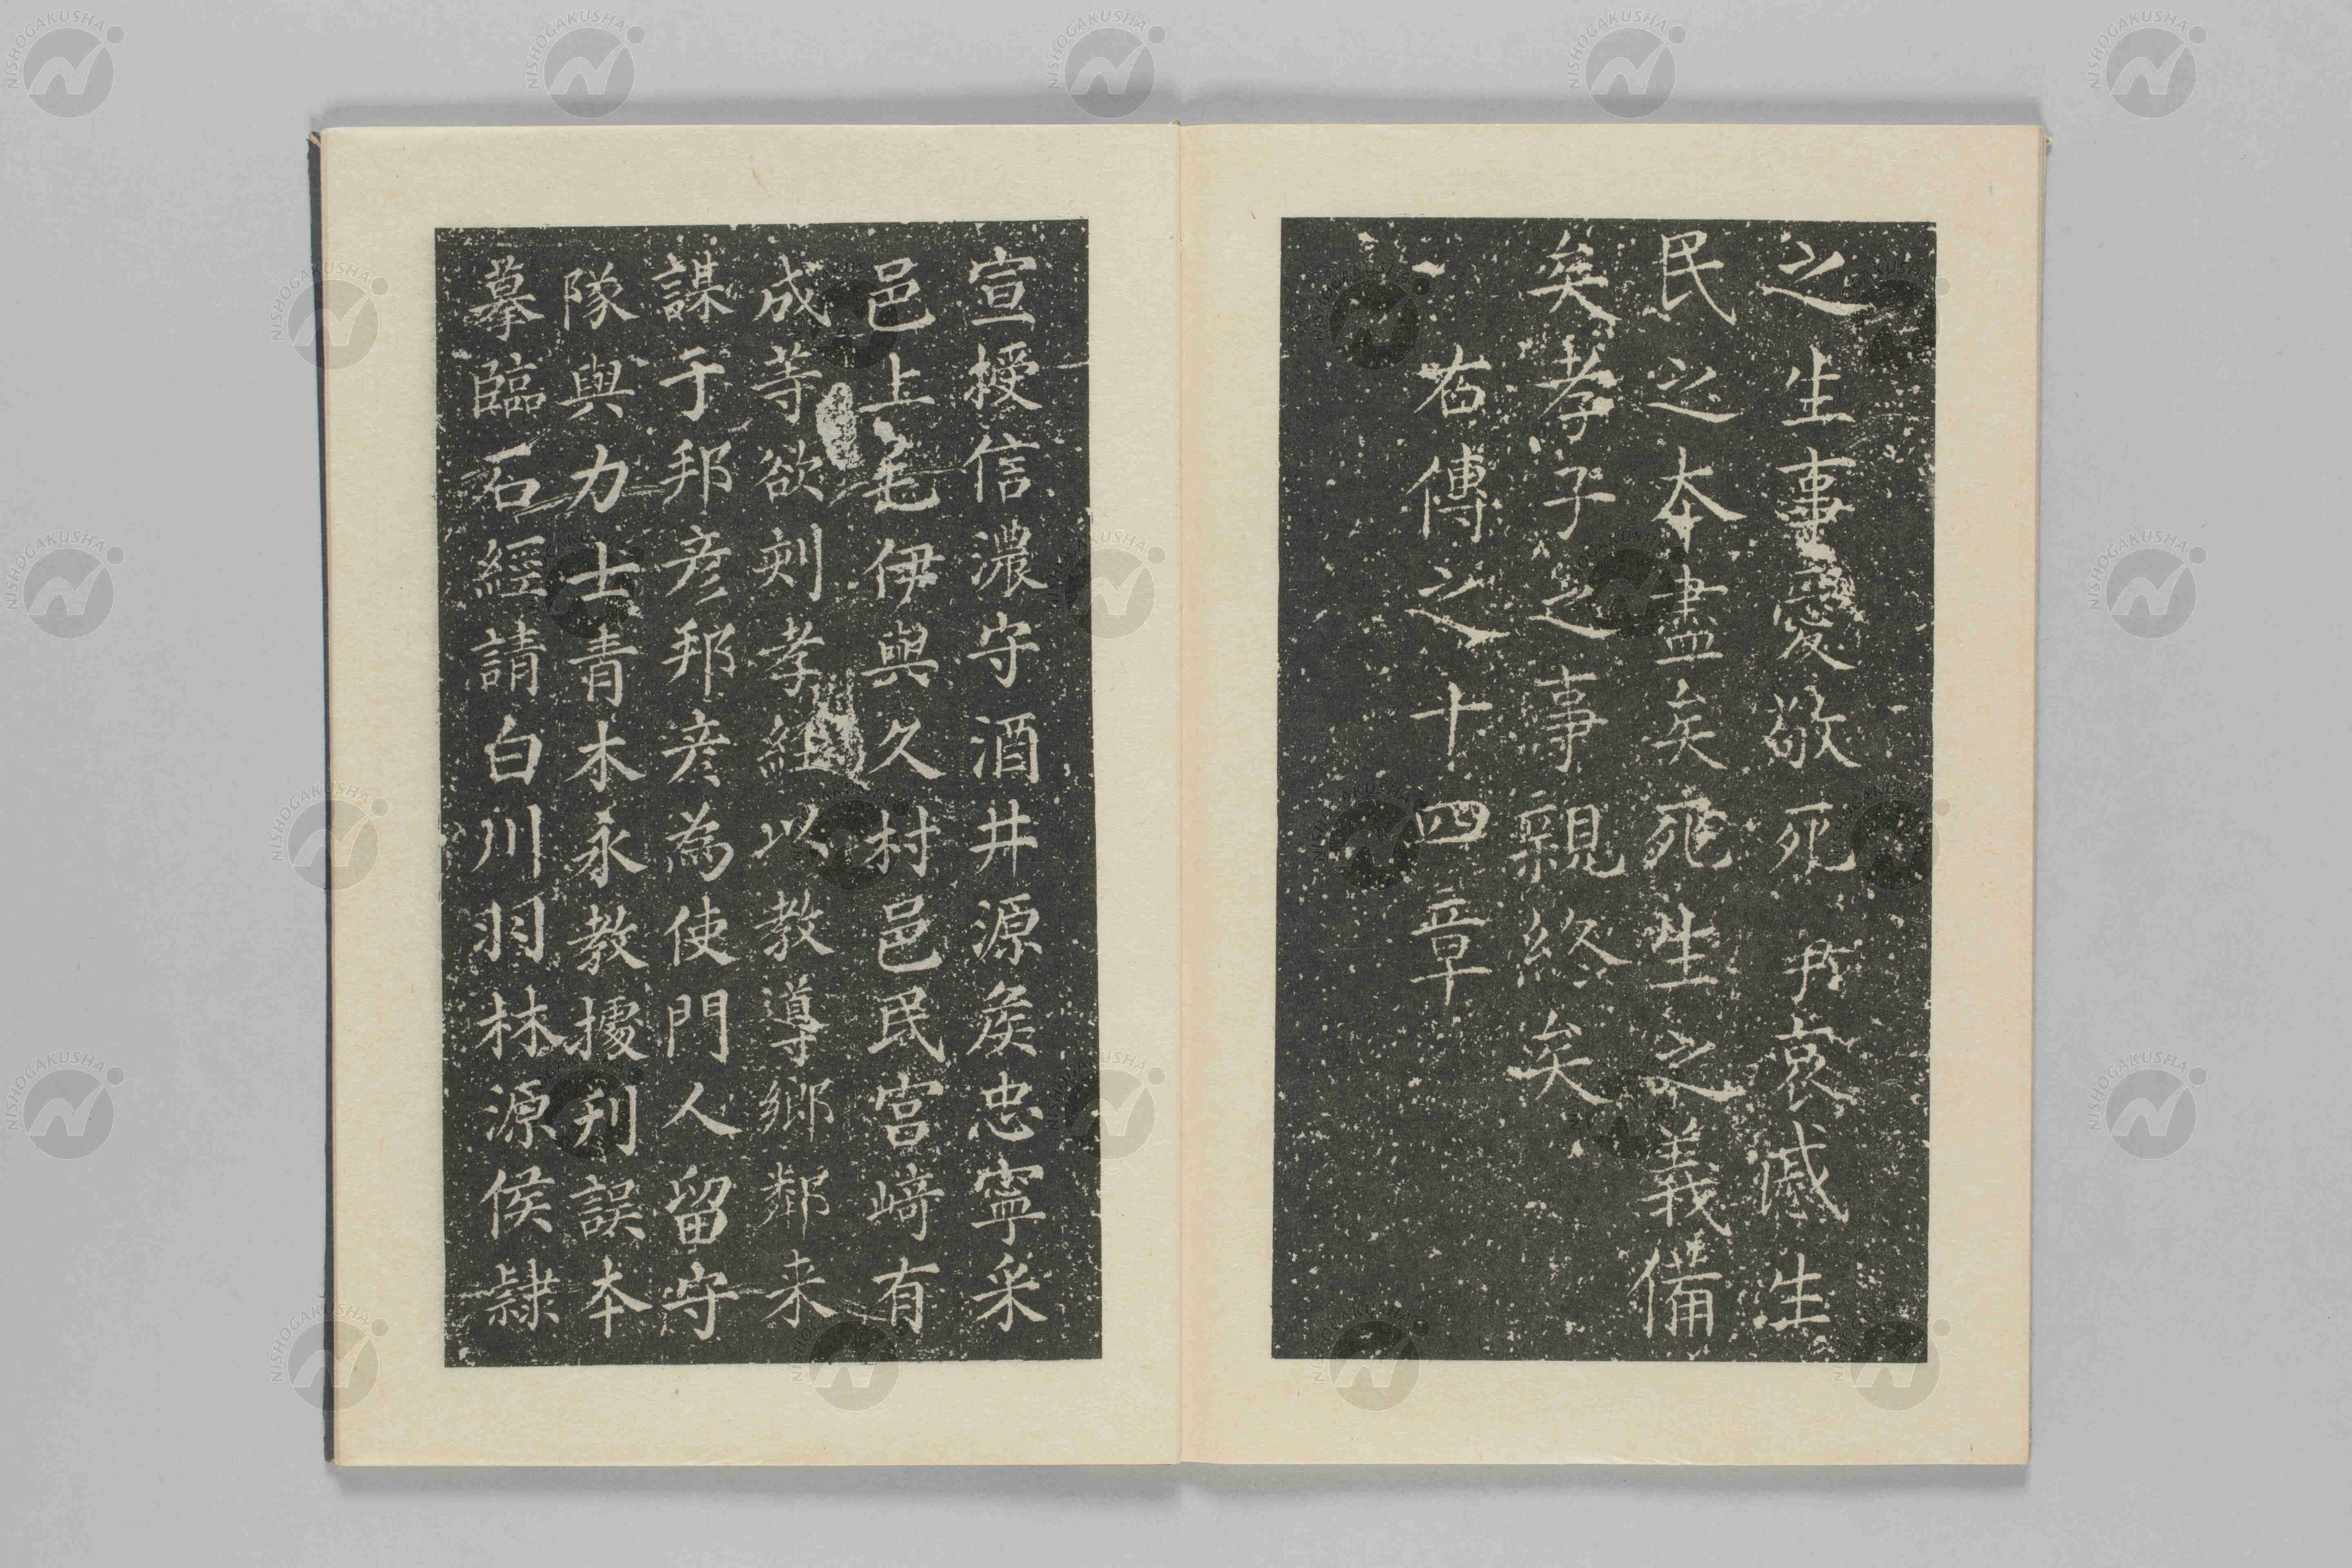 之生事愛敬死事哀慼生
民之本盡矣死生之義備
矣孝子之事親終矣
右傳之十四章
宣授信濃守酒井源矦忠寧采
邑上毛伊與久村邑民宮﨑有
成等欲刻孝經以教導鄉鄰来
謀于邦彦邦彦為使門人留守
隊與力士青木永教據刋誤本
摹臨石經請白川羽林源侯隷
NISHOGAKUSHA